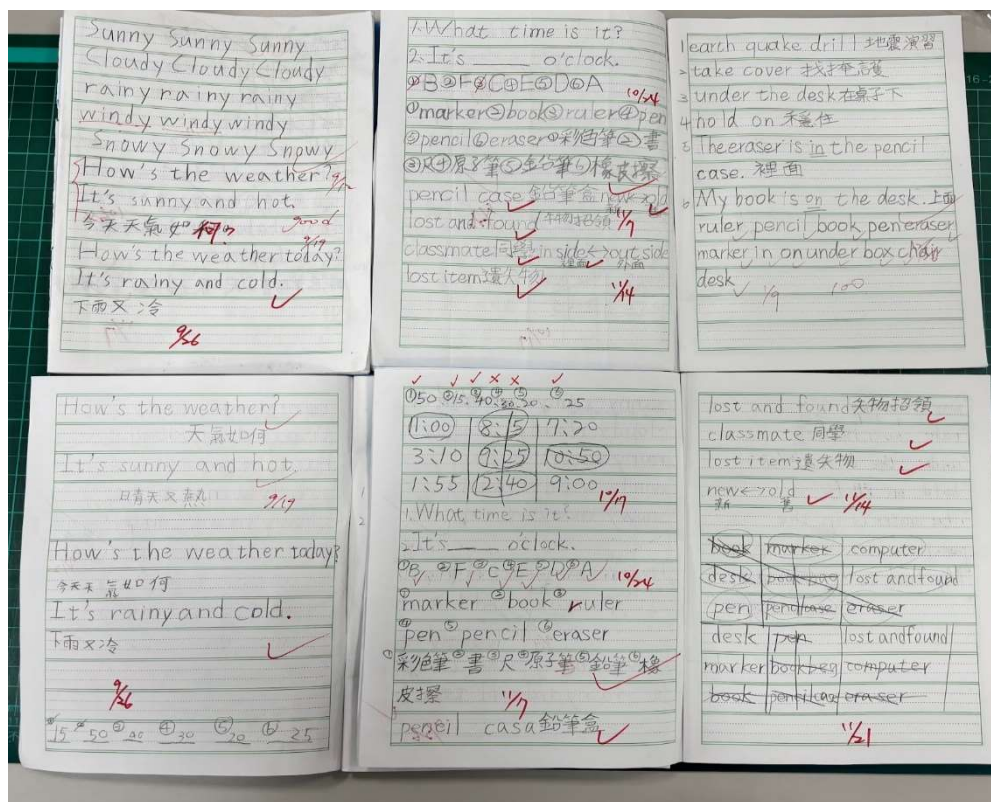 Sunny Sunny Sunny
Cloudy Cloudy Cloudy
rainy rainy rainy
windy windy windy
Snowy Snowy Snowy
How's the weather?
It's sunny and hot.
今天天氣如何?
good
9/19
How's the weather today?
It's rainy and cold.
下雨又冷
9/26
1.What time is it?
2.It's ____ o'clock.
①B②F③C④E⑤D⑥A
10/24
①marker②book③ruler④pen
⑤pencil⑥eraser①彩色筆②書
③尺④原子筆⑤鉛筆⑥橡皮擦
pencil case 鉛筆盒 new↔old
lost and found 失物招領 11/7
classmate 同學 inside↔outside
裡面 外面
lost item 遺失物
11/14
1earth quake drill 地震演習
2take cover 找掩護
3under the desk 在桌子下
4hold on 穩住
5The eraser is in the pencil
case. 裡面
6My book is on the desk. 上面
ruler pencil book pen eraser
marker in on under box chair
desk
1/9 100
How's the weather?
天氣如何
It's sunny and hot.
日青天又熱
9/19
How's the weather today?
今天天氣如何
It's rainy and cold.
下雨又冷
9/26
15 50 ③40 ④30 ⑤20 ⑥25
①50 ②15 ③40 ④30 ⑤20 ⑥25
1:00 8:15 7:20
3:10 9:25 10:50
1:55 12:40 9:00
10/17
1.What time is it?
2.It's ____ o'clock.
①B ②F ③C ④E ⑤D ⑥A
10/24
①marker ②book ③ruler
④pen ⑤pencil ⑥eraser
①彩色筆②書③尺④原子筆⑤鉛筆⑥橡
皮擦
11/7
pencil casa 鉛筆盒
lost and found 失物招領
classmate 同學
lost item 遺失物
new↔old
新 舊
11/14
book marker computer
desk bookbag lost andfound
pen pencilcase eraser
desk pen lost andfound
marker bookbag computer
book eraser
11/21